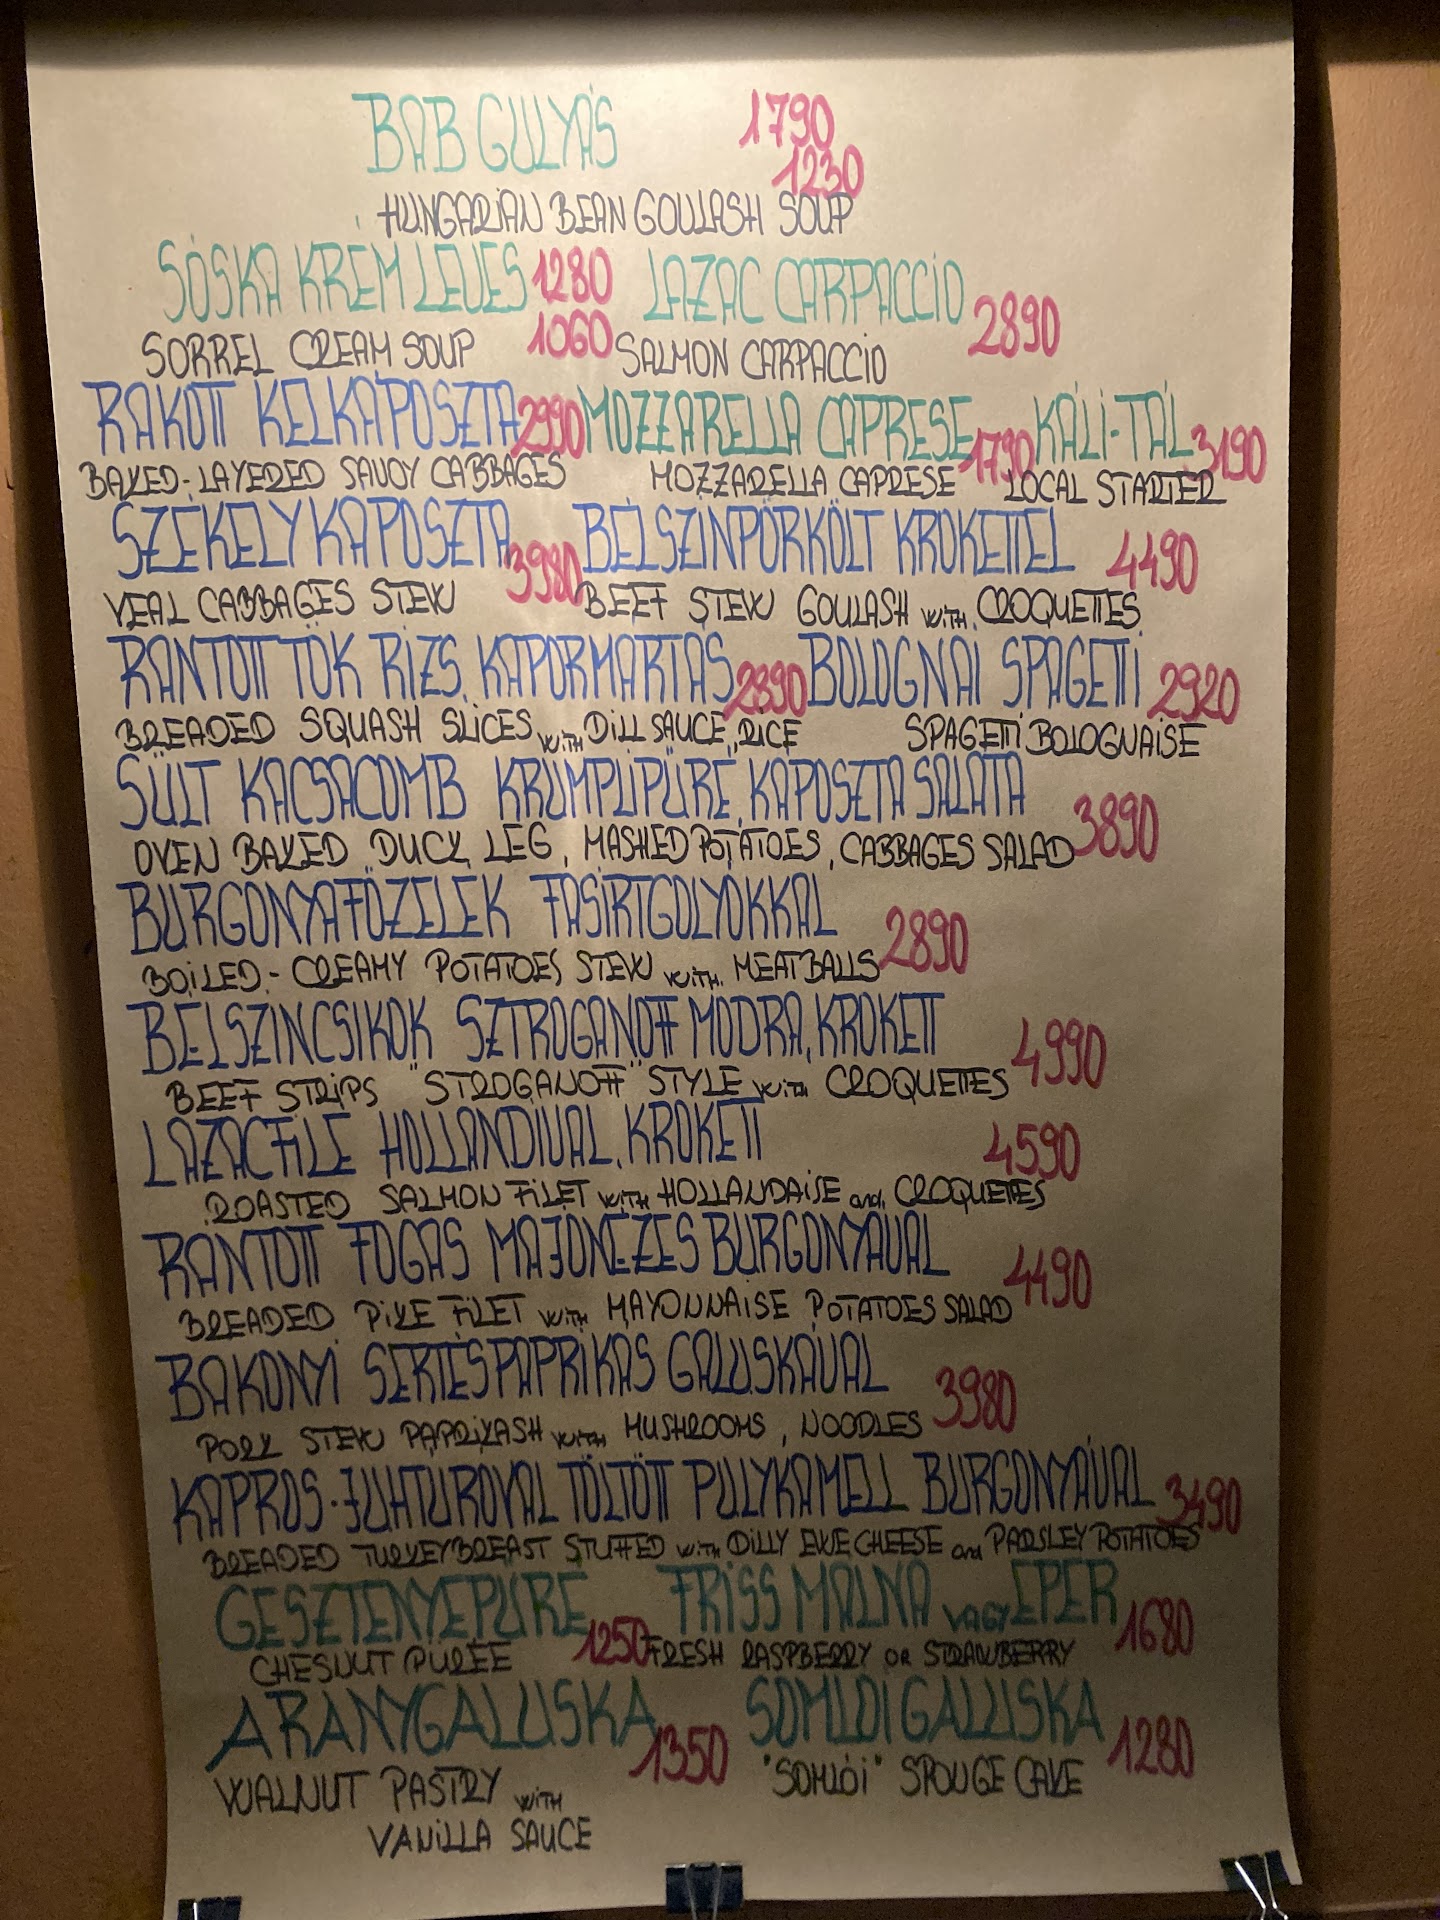 BAB GULYÁS 1790
1230
HUNGARIAN BEAN GOULASH SOUP
SÓSKA KRÉM LEVES 1280 LAZAC CARPACCIO 2890
SORREL CREAM SOUP 1060 SALMON CARPACCIO
RAKOTT KELKÁPOSZTA 2990 MOZZARELLA CAPRESE 1790 KÁLI-TÁL 3190
BAKED-LAYERED SAVOY CABBAGES MOZZARELLA CAPRESE LOCAL STARTER
SZÉKELY KÁPOSZTA 3980 BÉLSZÍNPÖRKÖLT KROKETTEL 4490
VEAL CABBAGES STEW BEEF STEW GOULASH WITH CROQUETTES
RÁNTOTT TÖK RIZS, KAPORMÁRTÁS 2890 BOLOGNAI SPAGETTI 2920
BREADED SQUASH SLICES WITH DILL SAUCE, RICE SPAGETTI BOLOGNAISE
SÜLT KACSACOMB KRUMPLIPÜRÉ, KÁPOSZTA SALÁTA 3890
OVEN BAKED DUCK LEG, MASHED POTATOES, CABBAGES SALAD
BURGONYAFŐZELÉK FASÍRTGOLYÓKKAL 2890
BOILED-CREAMY POTATOES STEW WITH MEATBALLS
BÉLSZÍNCSÍKOK SZTROGANOFF MÓDRA, KROKETT 4990
BEEF STRIPS "STROGANOFF" STYLE WITH CROQUETTES
LAZACFILÉ HOLLANDIVAL, KROKETT 4590
ROASTED SALMON FILET WITH HOLLANDAISE and CROQUETTES
RÁNTOTT FOGAS MAJONÉZES BURGONYÁVAL 4490
BREADED PIKE FILET WITH MAYONNAISE POTATOES SALAD
BAKONYI SERTÉSPAPRIKÁS GALUSKÁVAL 3980
PORK STEW PAPRIKASH WITH MUSHROOMS, NOODLES
KAPROS-JUHTÚRÓVAL TÖLTÖTT PULYKAMELL BURGONYÁVAL 3490
BREADED TURKEYBREAST STUFFED WITH DILLY EWE CHEESE and PARSLEY POTATOES
GESZTENYEPÜRÉ 1250 FRISS MÁLNA VAGY EPER 1680
CHESNUT PÜRÉE FRESH RASPBERRY OR STRAWBERRY
ARANYGALUSKA 1350 SOMLÓI GALUSKA 1280
WALNUT PASTRY WITH "SOMLÓI" SPOUGE CAKE
VANILLA SAUCE